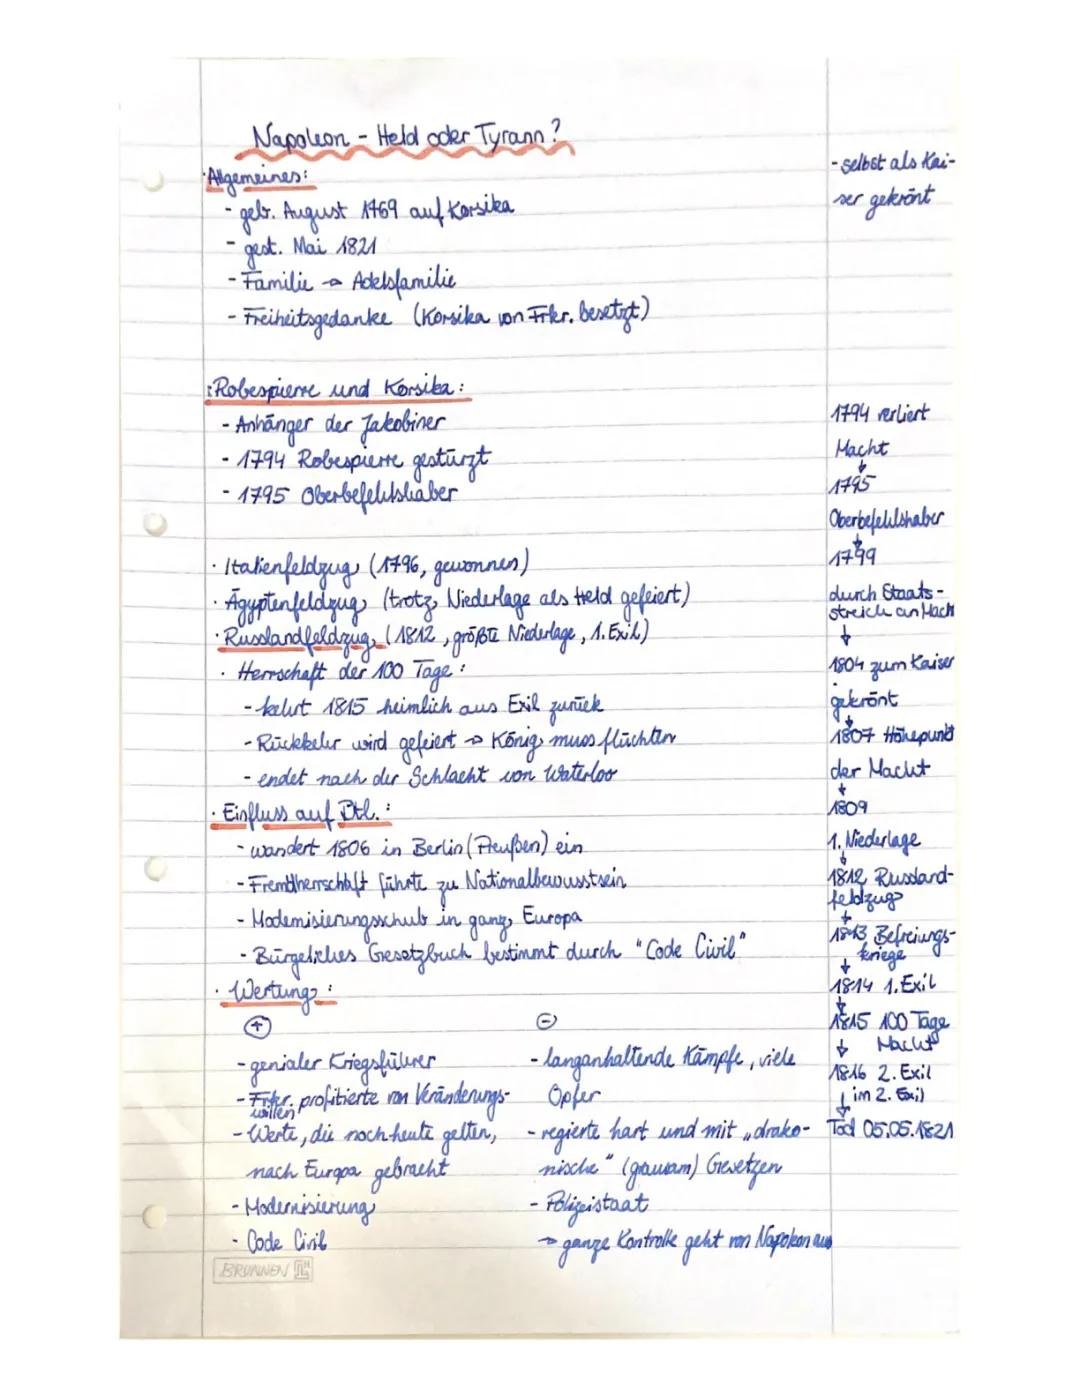 Napoleon - Held oder Tyrann?
· Allgemeines:
- geb. August 1769 auf Korsika
- gest. Mai 1821
- Familie → Adelsfamilie
- Freiheitsgedanke (Korsika von Frkr. besetzt)
: Robespierre und Korsika:
- Anhänger der Jakobiner
- 1794 Robespierre gestürzt
- 1795 Oberbefehlshaber
· Italienfeldzug (1796, gewonnen)
· Ägyptenfeldzug (trotz Niederlage als Held gefeiert)
· Russlandfeldzug (1812, größte Niederlage, 1. Exil)
· Herrschaft der 100 Tage:
- kehrt 1815 heimlich aus Exil zurück
- Rückkehr wird gefeiert → König muss flüchten
- endet nach der Schlacht von Waterloo
· Einfluss auf Dtl.:
- wandert 1806 in Berlin (Preußen) ein
- Fremdherrschaft führte zu Nationalbewusstsein
- Modernisierungsschub in ganz Europa
- Bürgeliches Gesetzbuch bestimmt durch "Code Civil"
· Wertung:
+
- genialer Kriegsführer
- Frkr. profitierte von Veränderungs-
willen
- Werte, die noch heute gelten,
nach Europa gebracht
- Modernisierung
- Code Civil
-
- langanhaltende Kämpfe, viele
Opfer
- regierte hart und mit „drako-
nische" (grausam) Gesetzen
- Polizeistaat
→ ganze Kontrolle geht von Napoleon aus
- selbst als Kai-
ser gekrönt
1794 verliert
Macht
↓
1795
Oberbefehlshaber
↓
1799
durch Staats-
streich an Mach
↓
1804 zum Kaiser
gekrönt
↓
1807 Höhepunkt
der Macht
↓
1809
1. Niederlage
↓
1812 Russland-
feldzug
↓
1813 Befreiungs-
↓ kriege
1814 1. Exil
↓
1815 100 Tage
↓ Macht
1816 2. Exil
↓ im 2. Exil
Tod 05.05.1821
BRUNNEN